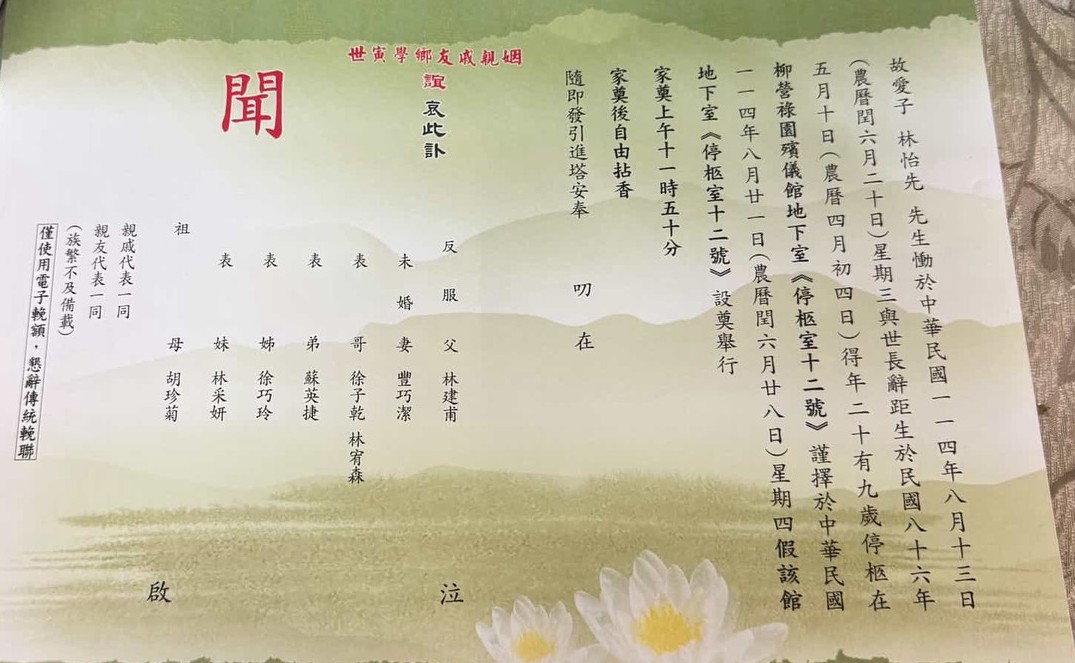 故愛子 林怡先 先生慟於中華民國一一四年八月十三日
(農曆閏六月二十日)星期三與世長辭距生於民國八十六年
五月十日(農曆四月初四日)得年二十有九歲停柩在
柳營祿園殯儀館地下室《停柩室十二號》謹擇於中華民國
一一四年八月廿一日(農曆閏六月廿八日)星期四假該館
地下室《停柩室十二號》設奠舉行
家奠上午十一時五十分
家奠後自由拈香
隨即發引進塔安奉
叨在
姻親戚友鄉學寅世
誼 哀此訃
聞
反服父 林建甫
未婚妻 豐巧潔
表哥 徐子乾 林宥森
表弟 蘇英捷
表姊 徐巧玲
表妹 林采妍
祖母 胡珍菊
泣
啟
親戚代表一同
親友代表一同
(族繁不及備載)
僅使用電子輓額，懇辭傳統輓聯